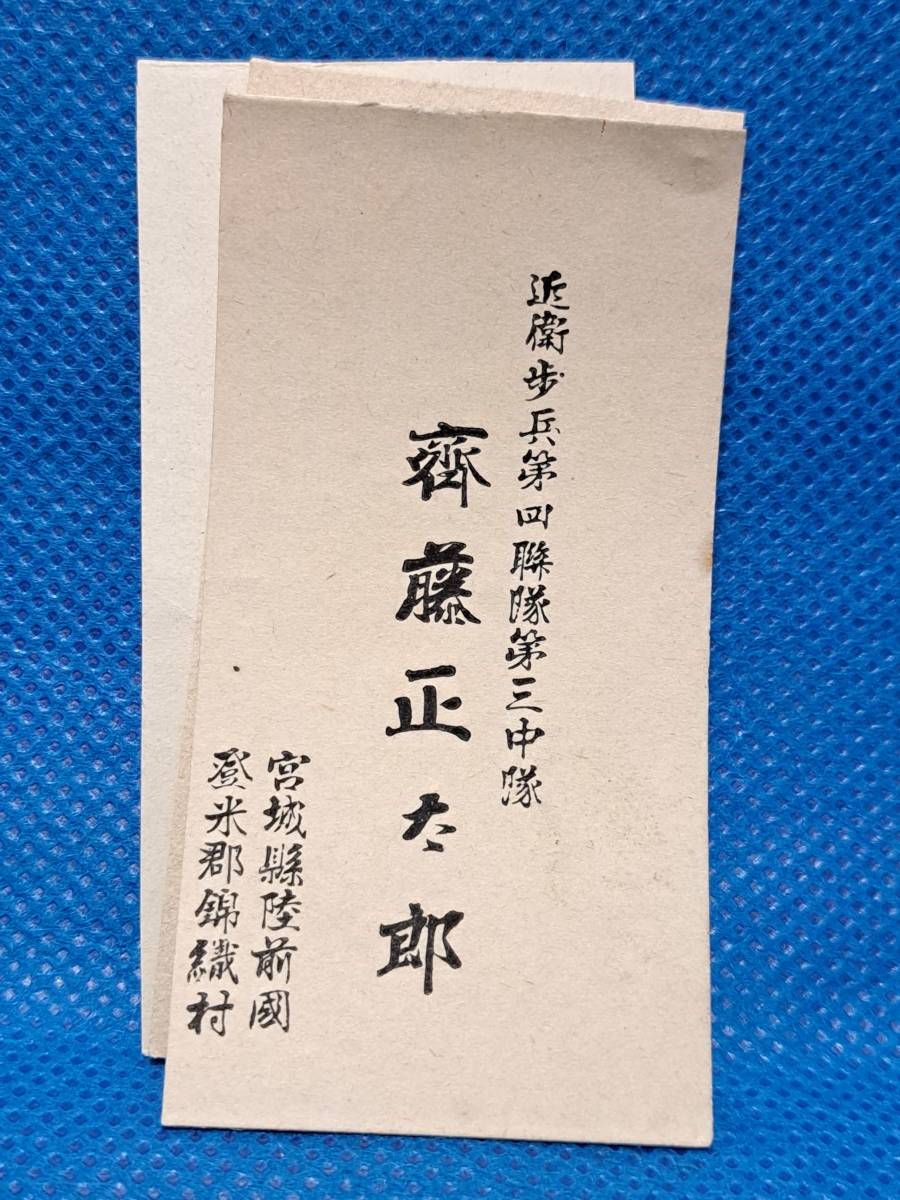 近衛歩兵第四聯隊第三中隊
齊藤正太郎
宮城縣陸前國
登米郡錦織村